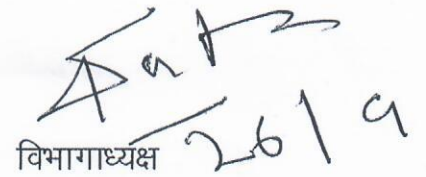 विभागाध्यक्ष 26/9